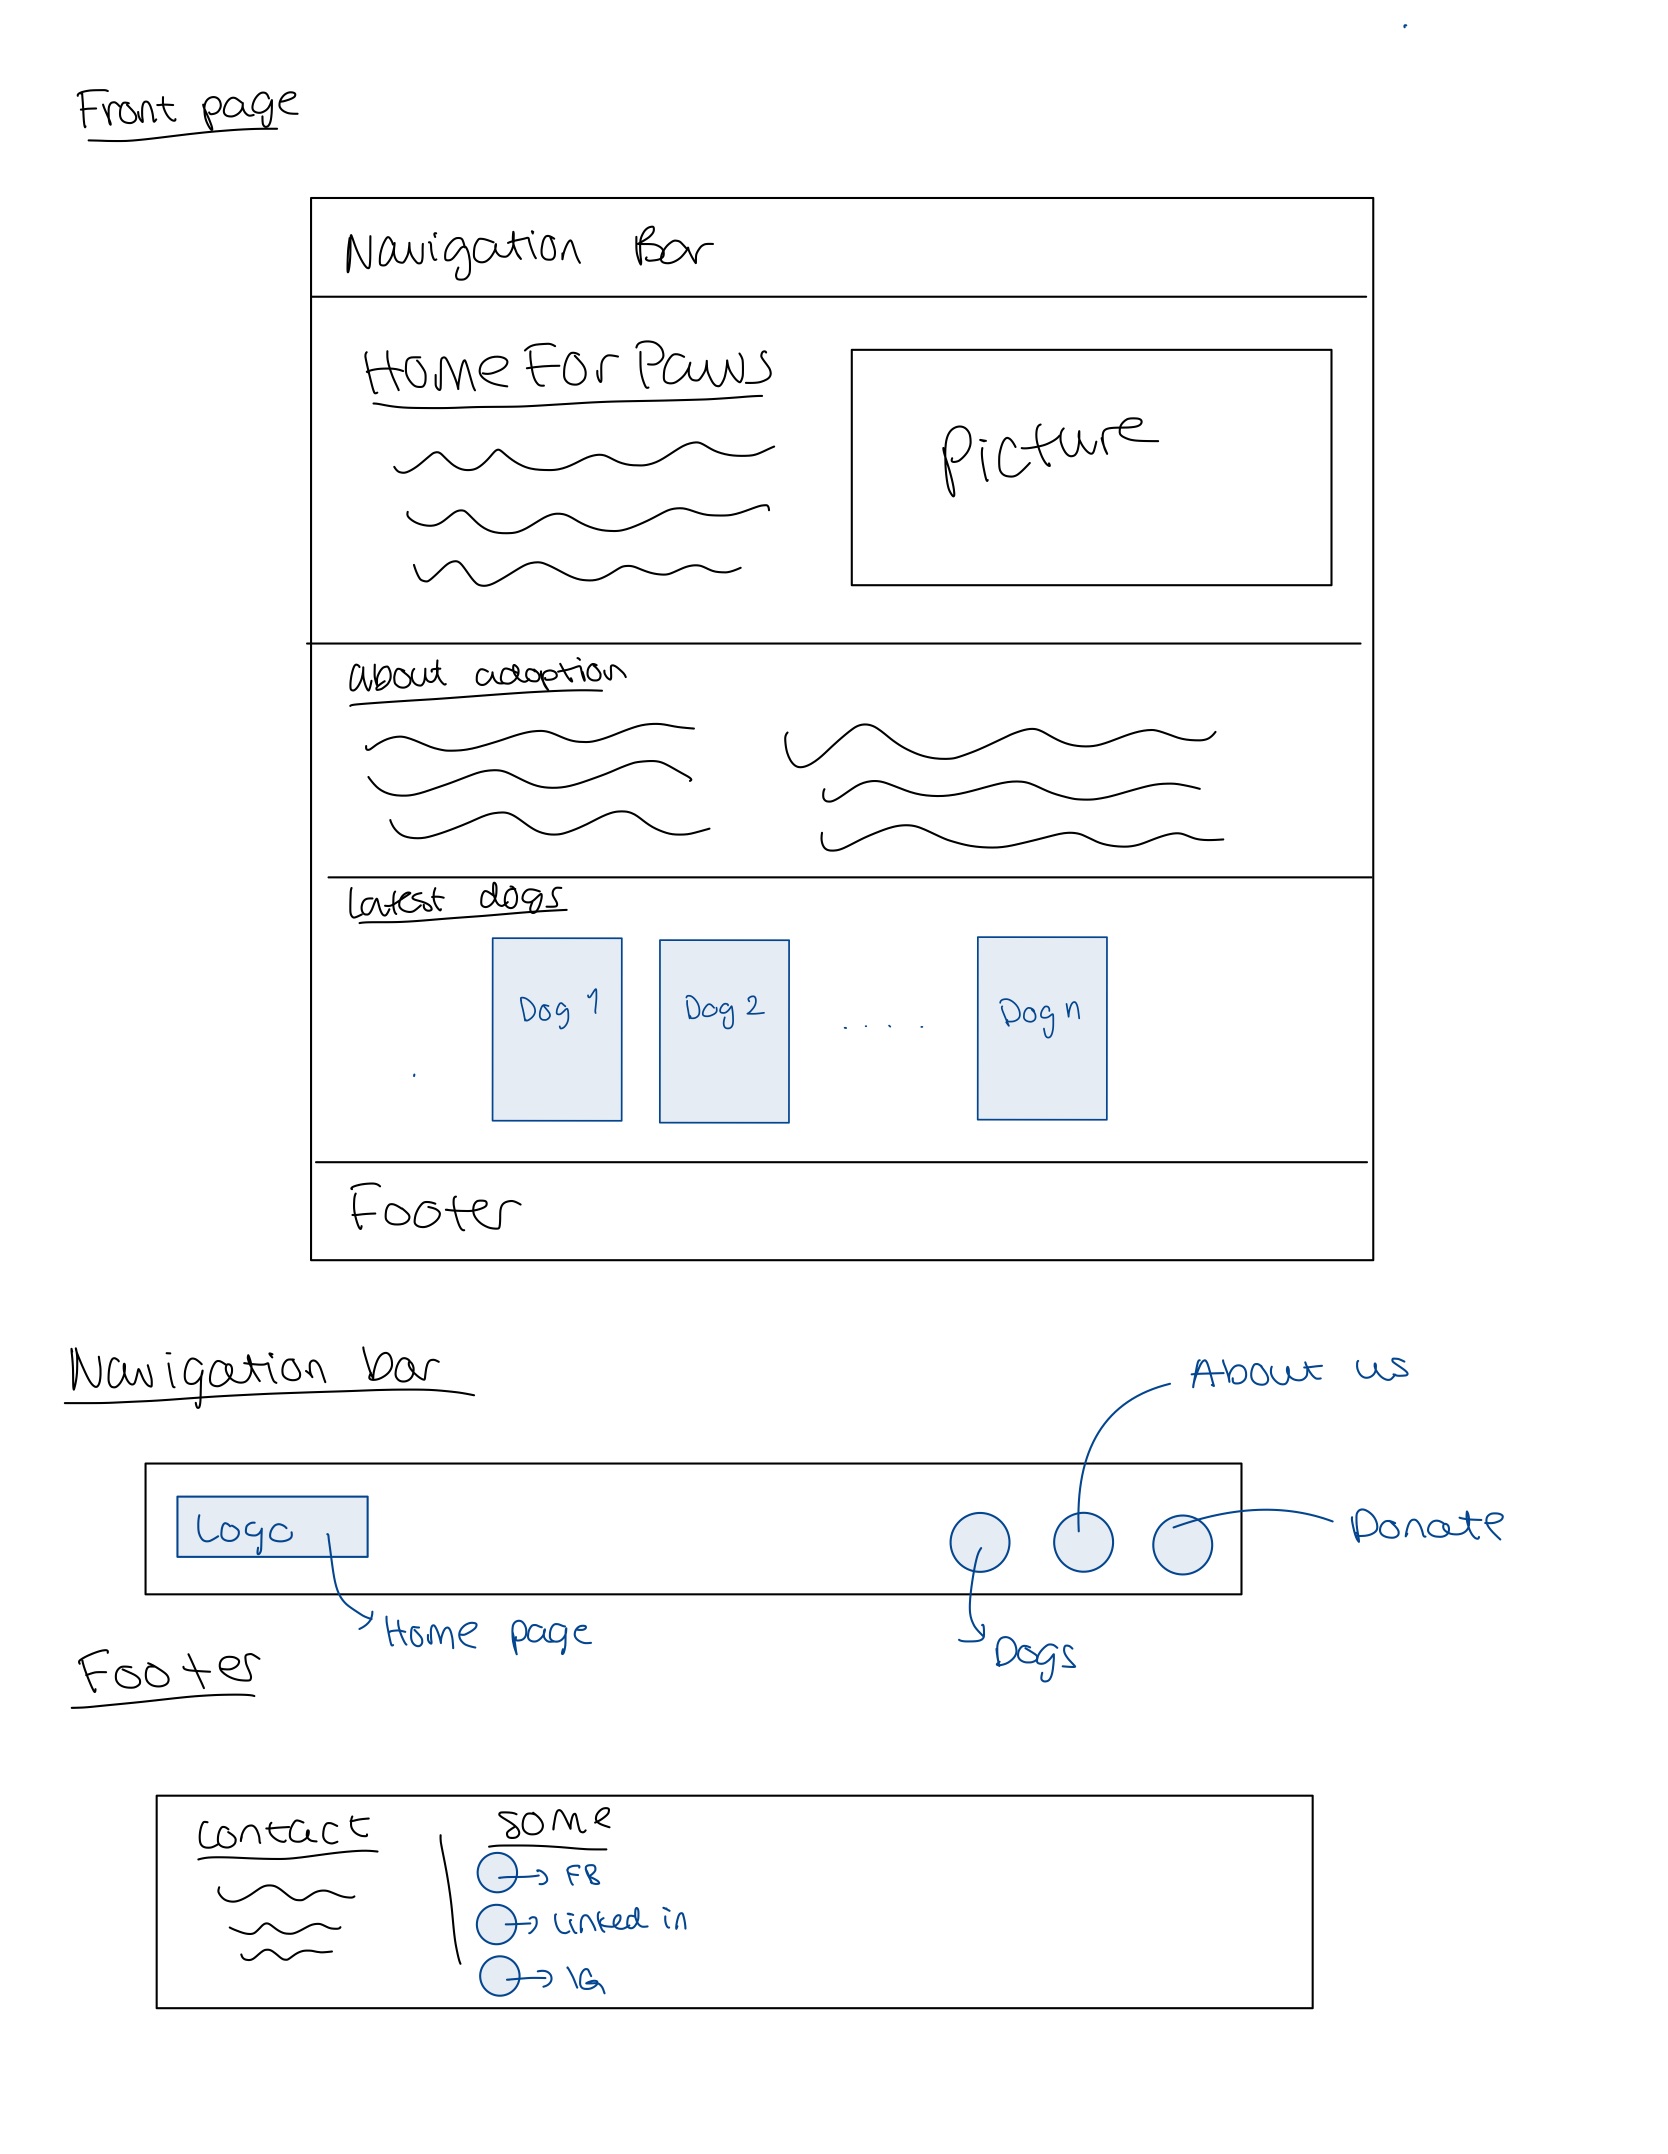 Front page
Navigation Bar
HomeForPaws
Picture
About adoption
Latest dogs
Dog 1
Dog 2
.....
Dog n
Footer
Navigation bar
About us
Logo
Donate
Home page
Dogs
Footer
Contact
SOME
FB
Linked in
IG